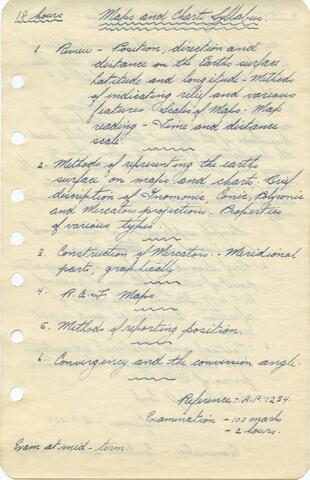 18 hours
Maps and Chart Syllabus.
1. Review - Position, direction and
distance on the Earths surface.
Latitude and longitude - Methods
of indicating relief and various
features. Scales of Maps. Map
reading - Time and distance
scale.
2. Methods of representing the earths
surface on maps and charts. Brief
discription of Gnomonic, Conic, Polyconic
and Mercators projections. Properties
of various types.
3. Construction of Mercators. - Meridional
parts, graphically
4. R.A.F. Maps.
5. Methods of reporting position.
6. Convergency and the conversion angle.
Reference:- A.P. 1234.
Examination - 100 marks
- 2 hours.
Exam at mid-term.